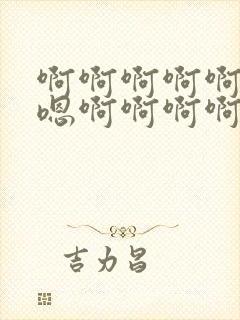 啊啊啊啊啊
嗯啊啊啊啊
吉力昌